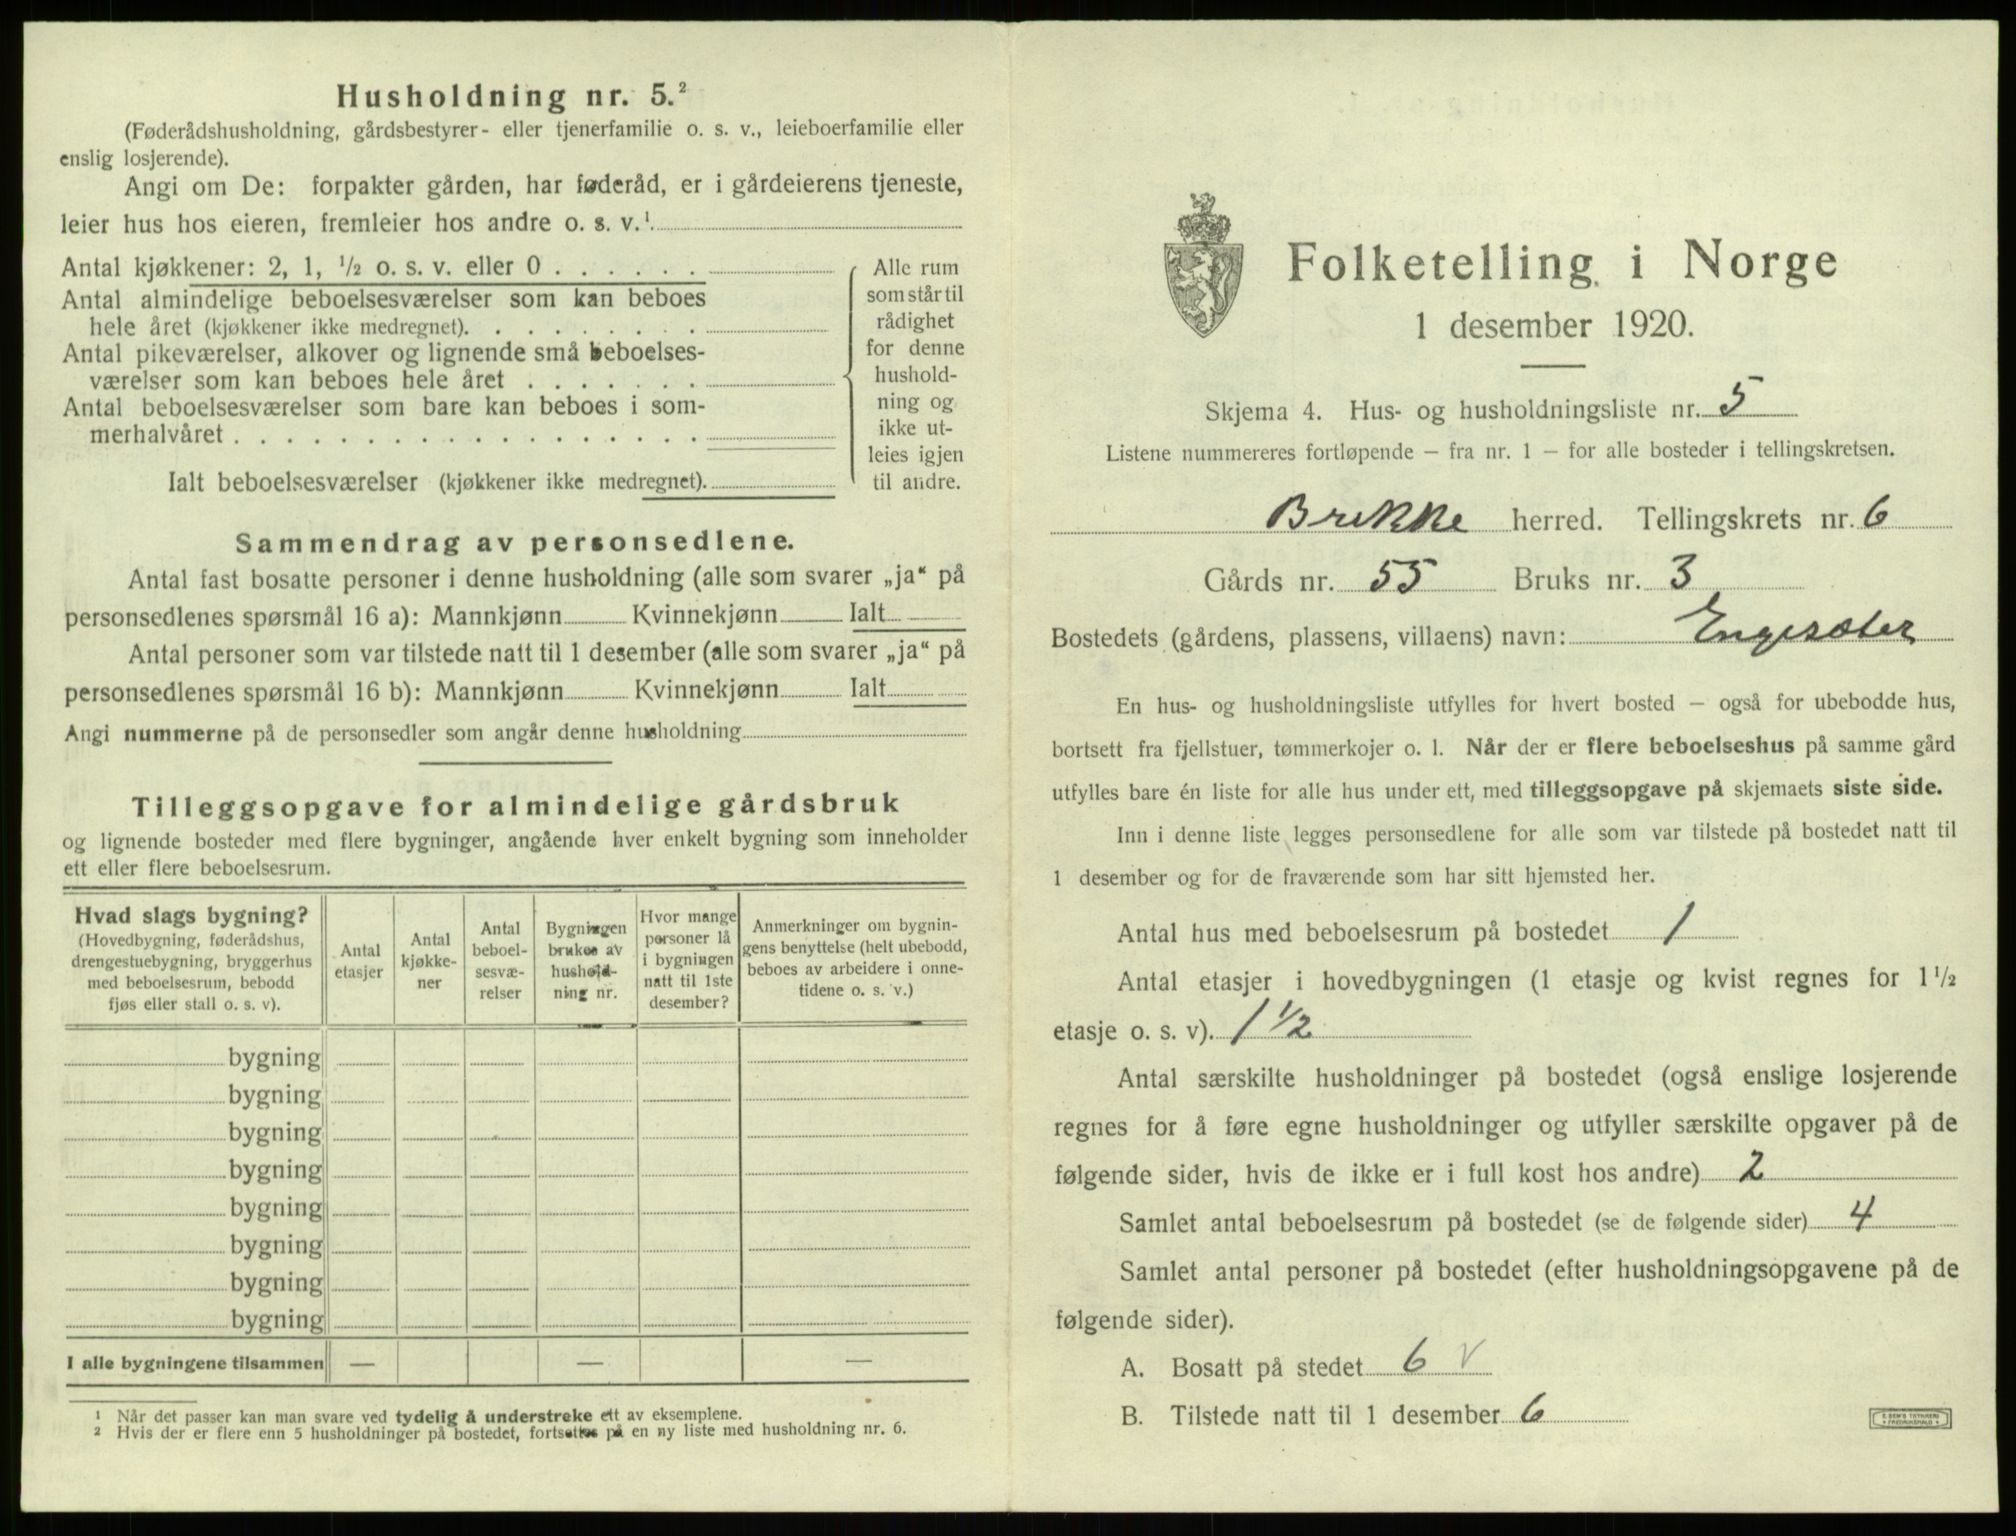 Husholdning nr. 5.²
(Føderådshusholdning, gårdsbestyrer- eller tjenerfamilie o. s. v., leieboerfamilie eller
enslig losjerende).
Angi om De: forpakter gården, har føderåd, er i gårdeierens tjeneste,
leier hus hos eieren, fremleier hos andre o. s. v.¹
Antal kjøkkener: 2, 1, ½ o. s. v. eller 0 . . . . . .
Antal almindelige beboelsesværelser som kan beboes
hele året (kjøkkener ikke medregnet). . . . . . . . .
Antal pikeværelser, alkover og lignende små beboelses-
værelser som kan beboes hele året . . . . . . .
Antal beboelsesværelser som bare kan beboes i som-
merhalvåret . . . . . . . . . . . . . . . . . .
Ialt beboelsesværelser (kjøkkener ikke medregnet).
Alle rum
som står til
rådighet
for denne
hushold-
ning og
ikke ut-
leies igjen
til andre.
Sammendrag av personsedlene.
Antal fast bosatte personer i denne husholdning (alle som svarer „ja“ på
personsedlenes spørsmål 16 a): Mannkjønn Kvinnekjønn Ialt
Antal personer som var tilstede natt til 1 desember (alle som svarer „ja“ på
personsedlenes spørsmål 16 b): Mannkjønn Kvinnekjønn Ialt
Angi nummerne på de personsedler som angår denne husholdning
Tilleggsopgave for almindelige gårdsbruk
og lignende bosteder med flere bygninger, angående hver enkelt bygning som inneholder
ett eller flere beboelsesrum.
Hvad slags bygning?
(Hovedbygning, føderådshus,
drengestuebygning, bryggerhus
med beboelsesrum, bebodd
fjøs eller stall o. s. v).
Antal
etasjer
Antal
kjøkke-
ner
Antal
beboel-
sesvæ-
relser
Bygningen
brukes av
hushold-
ning nr.
Hvor mange
personer lå
i bygningen
natt til 1ste
desember?
Anmerkninger om bygnin-
gens benyttelse (helt ubebodd,
beboes av arbeidere i onne-
tidene o. s. v.)
bygning
bygning
bygning
bygning
bygning
bygning
bygning
bygning
I alle bygningene tilsammen — — —
¹ Når det passer kan man svare ved tydelig å understreke ett av eksemplene.
² Hvis der er flere enn 5 husholdninger på bostedet, fortsettes på en ny liste med husholdning nr. 6.
Folketelling i Norge
1 desember 1920.
Skjema 4. Hus- og husholdningsliste nr. 5
Listene nummereres fortløpende — fra nr. 1 — for alle bosteder i tellingskretsen.
Brekke herred. Tellingskrets nr. 6
Gårds nr. 55 Bruks nr. 3
Bostedets (gårdens, plassens, villaens) navn: Engesæter
En hus- og husholdningsliste utfylles for hvert bosted — også for ubebodde hus,
bortsett fra fjellstuer, tømmerkojer o. l. Når der er flere beboelseshus på samme gård
utfylles bare én liste for alle hus under ett, med tilleggsopgave på skjemaets siste side.
Inn i denne liste legges personsedlene for alle som var tilstede på bostedet natt til
1 desember og for de fraværende som har sitt hjemsted her.
Antal hus med beboelsesrum på bostedet 1
Antal etasjer i hovedbygningen (1 etasje og kvist regnes for 1½
etasje o. s. v). 1½
Antal særskilte husholdninger på bostedet (også enslige losjerende
regnes for å føre egne husholdninger og utfyller særskilte opgaver på de
følgende sider, hvis de ikke er i full kost hos andre) 2
Samlet antal beboelsesrum på bostedet (se de følgende sider) 4
Samlet antal personer på bostedet (efter husholdningsopgavene på de
følgende sider).
A. Bosatt på stedet 6 v
B. Tilstede natt til 1 desember 6